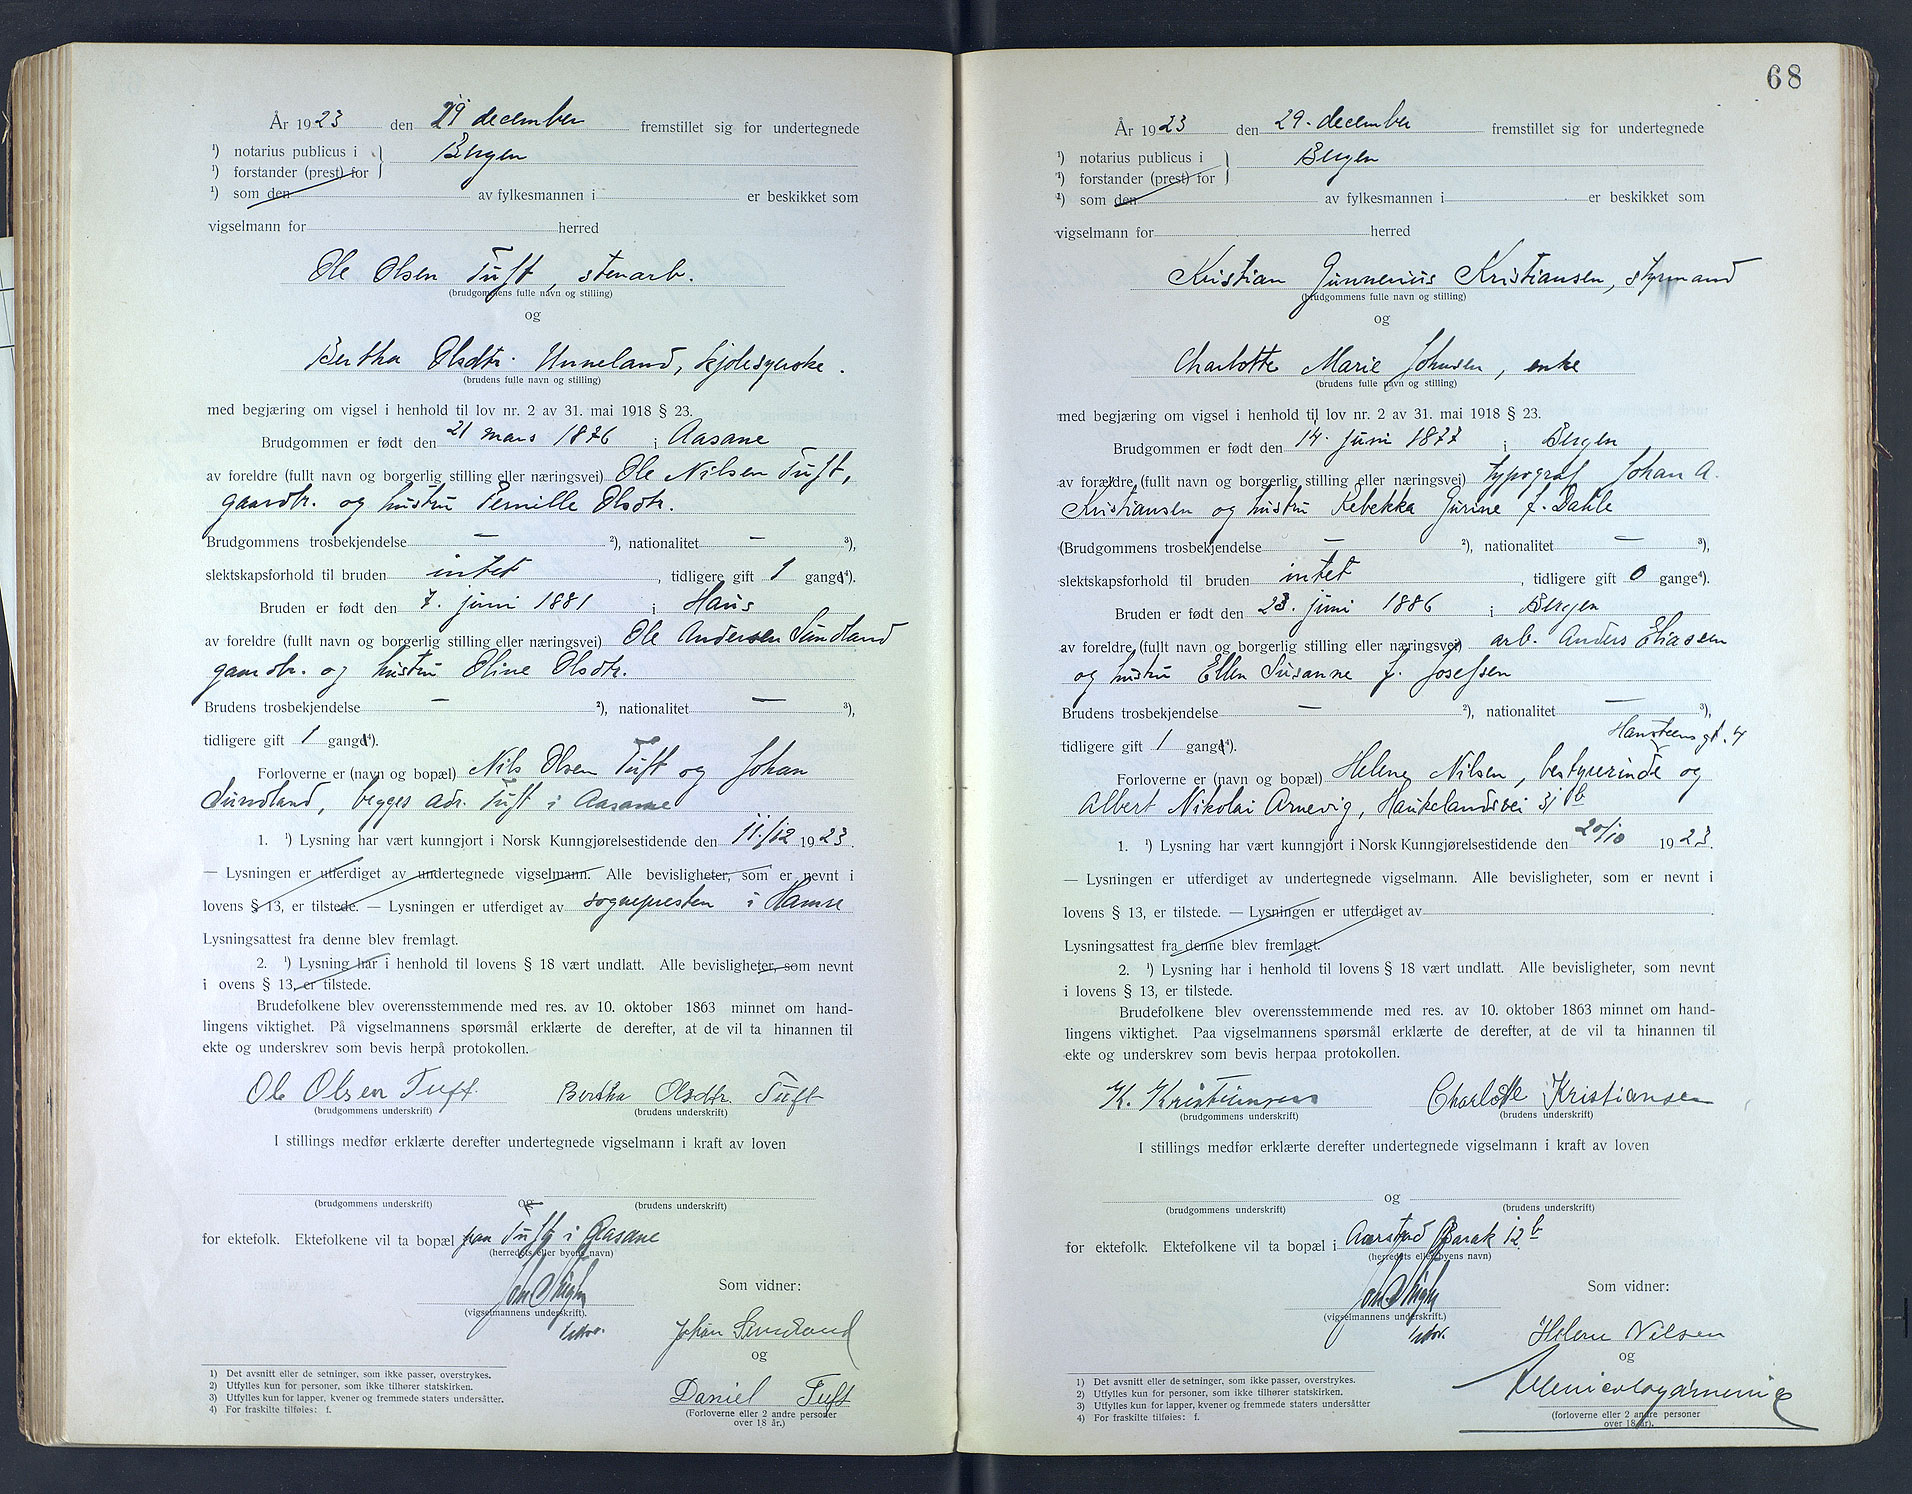 År 1923 den 29 december fremstillet sig for undertegnede
¹) notarius publicus i } Bergen
¹) forstander (prest) for
¹) som den av fylkesmannen i er beskikket som
vigselmann for herred
Ole Olsen Tuft, stenarb.
(brudgommens fulle navn og stilling)
og
Bertha Olsdtr. Unneland, kjolesyerske.
(brudens fulle navn og stilling)
med begjæring om vigsel i henhold til lov nr. 2 av 31. mai 1918 § 23.
Brudgommen er født den 21 mars 1876 i Aasane
av foreldre (fullt navn og borgerlig stilling eller næringsvei) Ole Nilsen Tuft,
gaardbr. og hustru Pernille Olsdtr.
Brudgommens trosbekjendelse — ²), nationalitet — ³),
slektskapsforhold til bruden intet, tidligere gift 1 gang⁴).
Bruden er født den 7. juni 1881 i Haus
av foreldre (fullt navn og borgerlig stilling eller næringsvei) Ole Andersen Sundland
gaardbr. og hustru Oline Olsdtr.
Brudens trosbekjendelse — ²), nationalitet — ³),
tidligere gift 1 gang⁴).
Forloverne er (navn og bopæl) Nils Olsen Tuft og Johan
Sundland, begges adr. Tuft i Aasane
1. ¹) Lysning har vært kunngjort i Norsk Kunngjørelsestidende den 11./12 1923.
— Lysningen er utferdiget av undertegnede vigselmann. Alle bevisligheter, som er nevnt i
lovens § 13, er tilstede. — Lysningen er utferdiget av sognepresten i Hamre
Lysningsattest fra denne blev fremlagt.
2. ¹) Lysning har i henhold til lovens § 18 vært undlatt. Alle bevisligheter, som nevnt
i ovens § 13, er tilstede.
Brudefolkene blev overensstemmende med res. av 10. oktober 1863 minnet om hand-
lingens viktighet. På vigselmannens spørsmål erklærte de derefter, at de vil ta hinannen til
ekte og underskrev som bevis herpå protokollen.
Ole Olsen Tuft. Bertha Olsdtr. Tuft
(brudgommens underskrift) (brudens underskrift)
I stillings medfør erklærte derefter undertegnede vigselmann i kraft av loven
og
(brudgommens underskrift) (brudens underskrift)
for ektefolk. Ektefolkene vil ta bopæl paa Tuft i Aasane
(herredets eller byens navn)
Som vidner:
(vigselmannens underskrift).
Johan Sundland
og
Daniel Tuft
(Forloverne eller 2 andre personer
over 18 år.)
1) Det avsnitt eller de setninger, som ikke passer, overstrykes.
2) Utfylles kun for personer, som ikke tilhører statskirken.
3) Utfylles kun for lapper, kvener og fremmede staters undersåtter.
4) For fraskilte tilføies: f.
68
År 1923 den 29. december fremstillet sig for undertegnede
¹) notarius publicus i } Bergen
¹) forstander (prest) for
²) som den av fylkesmannen i er beskikket som
vigselmann for herred
Kristian Gunnerius Kristiansen, styrmand
(brudgommens fulle navn og stilling)
og
Charlotte Marie Johnsen, enke
(brudens fulle navn og stilling)
med begjæring om vigsel i henhold til lov nr. 2 av 31. mai 1918 § 23.
Brudgommen er født den 14. juni 1877 i Bergen
av forældre (fullt navn og borgerlig stilling eller næringsvei) typograf Johan A.
Kristiansen og hustru Rebekka Gurine f. Dahle
(Brudgommens trosbekjendelse — ²), nationalitet — ³),
slektskapsforhold til bruden intet, tidligere gift 0 gange⁴).
Bruden er født den 23. juni 1886 i Bergen
av foreldre (fullt navn og borgerlig stilling eller næringsvei) arb. Anders Eliassen
og hustru Ellen Susanne f. Josefsen
Brudens trosbekjendelse — ²), nationalitet — ³),
tidligere gift 1 gang⁴). Hansteensgt. 4
Forloverne er (navn og bopæl) Helene Nilsen, bestyrerinde og
Albert Nikolai Arnevig, Haukelandsvei 31 b
1. ¹) Lysning har vært kunngjort i Norsk Kunngjørelsestidende den 20/10 1923.
— Lysningen er utferdiget av undertegnede vigselmann. Alle bevisligheter, som er nevnt i
lovens § 13, er tilstede. — Lysningen er utferdiget av
Lysningsattest fra denne blev fremlagt.
2. ¹) Lysning har i henhold til lovens § 18 vært undlatt. Alle bevisligheter, som nevnt
i lovens § 13, er tilstede.
Brudefolkene blev overensstemmende med res. av 10. oktober 1863 minnet om hand-
lingens viktighet. Paa vigselmannens spørsmål erklærte de derefter, at de vil ta hinannen til
ekte og underskrev som bevis herpaa protokollen.
K. Kristiansen Charlotte Kristiansen
(brudgommens underskrift) (brudens underskrift)
I stillings medfør erklærte derefter undertegnede vigselmann i kraft av loven
og
(brudgommens underskrift) (brudens underskrift)
for ektefolk. Ektefolkene vil ta bopæl i Aarstad Barak 12 b
(herredets eller byens navn)
Som vidner:
(vigselmannens underskrift.)
Helene Nilsen
og
(forloverne eller 2 andre personer
over 18 år).
1) Det avsnitt eller de setninger, som ikke passer, overstrykes.
2) Utfylles kun for personer, som ikke tilhører statskirken.
3) Utfylles kun for lapper, kvener og fremmede staters undersåtter
4) For fraskilte tilføies: f.